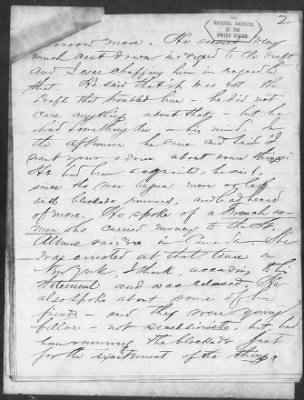 2
NATIONAL ARCHIVES
OF THE
UNITED STATES
more. He seemed very
much cast down in regard to the draft
and I was chaffing him in regard to
that. He said that it was not the
draft that troubled him - he did not
care anything about that - but he
had something on his mind. In
the afternoon he came and said I
want your advice about some things.
He had been acquainted, he said,
since the war begun more or less
with blockade runners, and had heard
of more. He spoke of a French wo-
man who carried money to the St.
Albans raiders in Canada. She
was arrested at that time in
New York, I think, according to his
statement and was released. He
also spoke about some of his
friends - and they were young
fellows - not secessionists - but had
been running the blockade just
for the excitement of the thing.